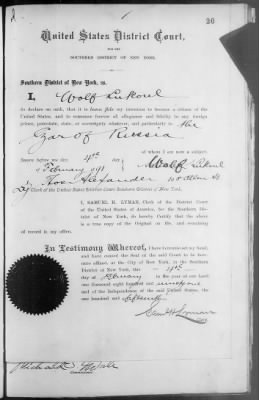 26
United States District Court,
FOR THE
SOUTHERN DISTRICT OF NEW YORK.
Southern District of New York, ss.
I, Wolf
do declare on oath, that it is bona fide my intention to become a citizen of the
United States, and to renounce forever all allegiance and fidelity to any foreign
prince, potentate, state, or sovereignty whatever, and particularly to the
Czar of Russia
of whom I am now a subject.
Sworn before me this 4th day Wolf
of February 1891
Alexander
Clerk of the United States District Court Southern District of New York.
I, SAMUEL H. LYMAN, Clerk of the District Court
of the United States of America, for the Southern Dis-
trict of New York, do hereby Certify that the above
is a true copy of the Original on file, and remaining
of record in my office.
In Testimony Whereof, I have hereunto set my hand,
and have caused the Seal of the said Court to be here-
unto affixed, at the City of New York, in the Southern
District of New York, this 4th
day of February in the year of our Lord
one thousand eight hundred and ninety one
and of the Independence of the said United States, the
one hundred and fifteenth
Sam H Lyman